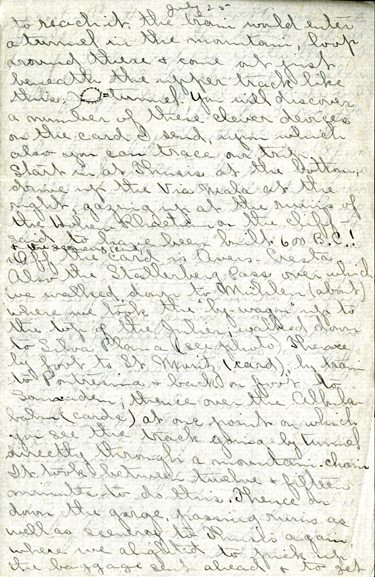 July 25
to reach it the train would enter
a tunnel in the mountain, loop
around there & come out just
beneath the upper track like
this: = tunnel. You will discover
a number of these clever devices
on the card I send, upon which
also you can trace our trip.
Start in at Thusis at the bottom;
drive up the Via Mala at the
right, gazing up at the ruins of
the on the cliff –
said to have been built 600 B.C.!
Off the card is Avers-Cresta.
Also the Stallerberg Pass over which
we walked down to (about)
where we took the "by-wagon" up to
the top of the Julier, walked down
to Silva Plana (see photo). Thence
by foot to St Moritz (card), by train
to Pontresina & back on foot to
Samaden; thence over the Albula
bahn (cards) at one point on which
you see the track going by tunnel
directly through a mountain chain
It took between twelve & fifteen
minutes to do this. Thence on
down the gorge passing ruins as
well as scenery to Thusis again
where we alighted to pick up
the baggage sent ahead & to get